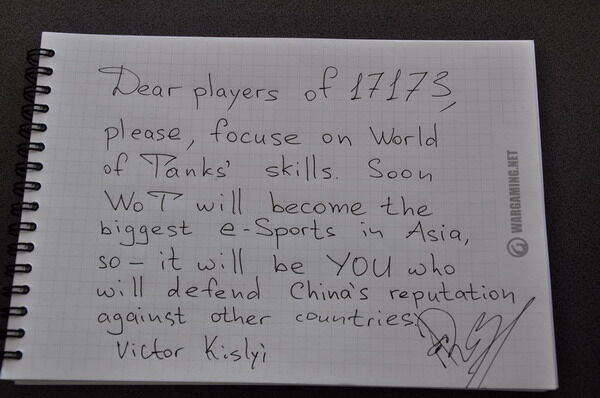 Dear players of 17173,
please, focuse on World
of Tanks' skills. Soon
WoT will become the
biggest e-Sports in Asia,
so – it will be YOU who
will defend China's reputation
against other countries.
Victor Kislyi
WARGAMING.NET